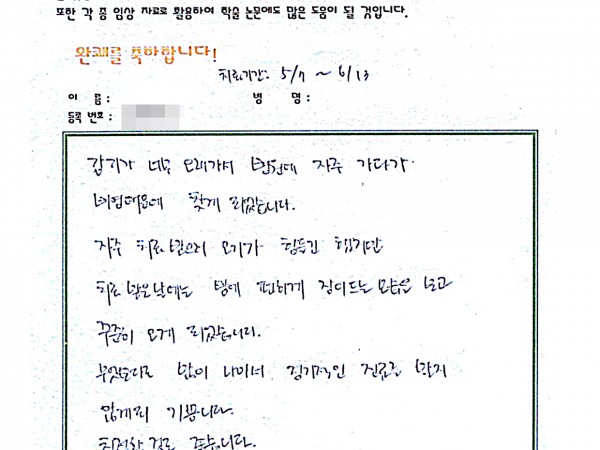 또한 각 종 임상 자료로 활용하여 학술 논문에도 많은 도움이 될 것입니다.
완쾌를 축하합니다!
치료기간: 5/7 ~ 6/13
이 름 : 병 명 :
등록 번호 :
감기가 너무 오래가서 병원에 자주 가다가
비염때문에 찾게 되었습니다.
자주 치료 받으러 오기가 힘들긴 했지만
치료 받은 날에는 밤에 편하게 잠이드는 모습을 보고
꾸준히 오게 되었습니다.
무엇보다도 많이 나아져 정기적인 진료를 받지
않게되 기쁩니다.